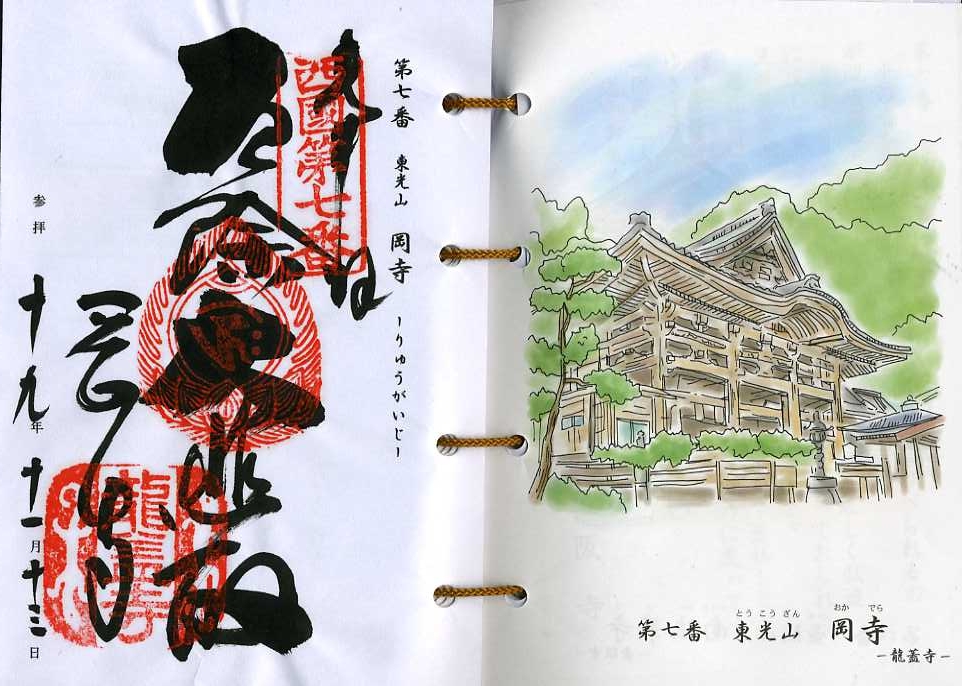 第七番 東光山 岡寺 ーりゅうがいじー
西國第七番
大悲殿
龍蓋寺
参拝 十九年 十一月 十三日
とうこうざん おかでら
第七番 東光山 岡寺
ー龍蓋寺ー